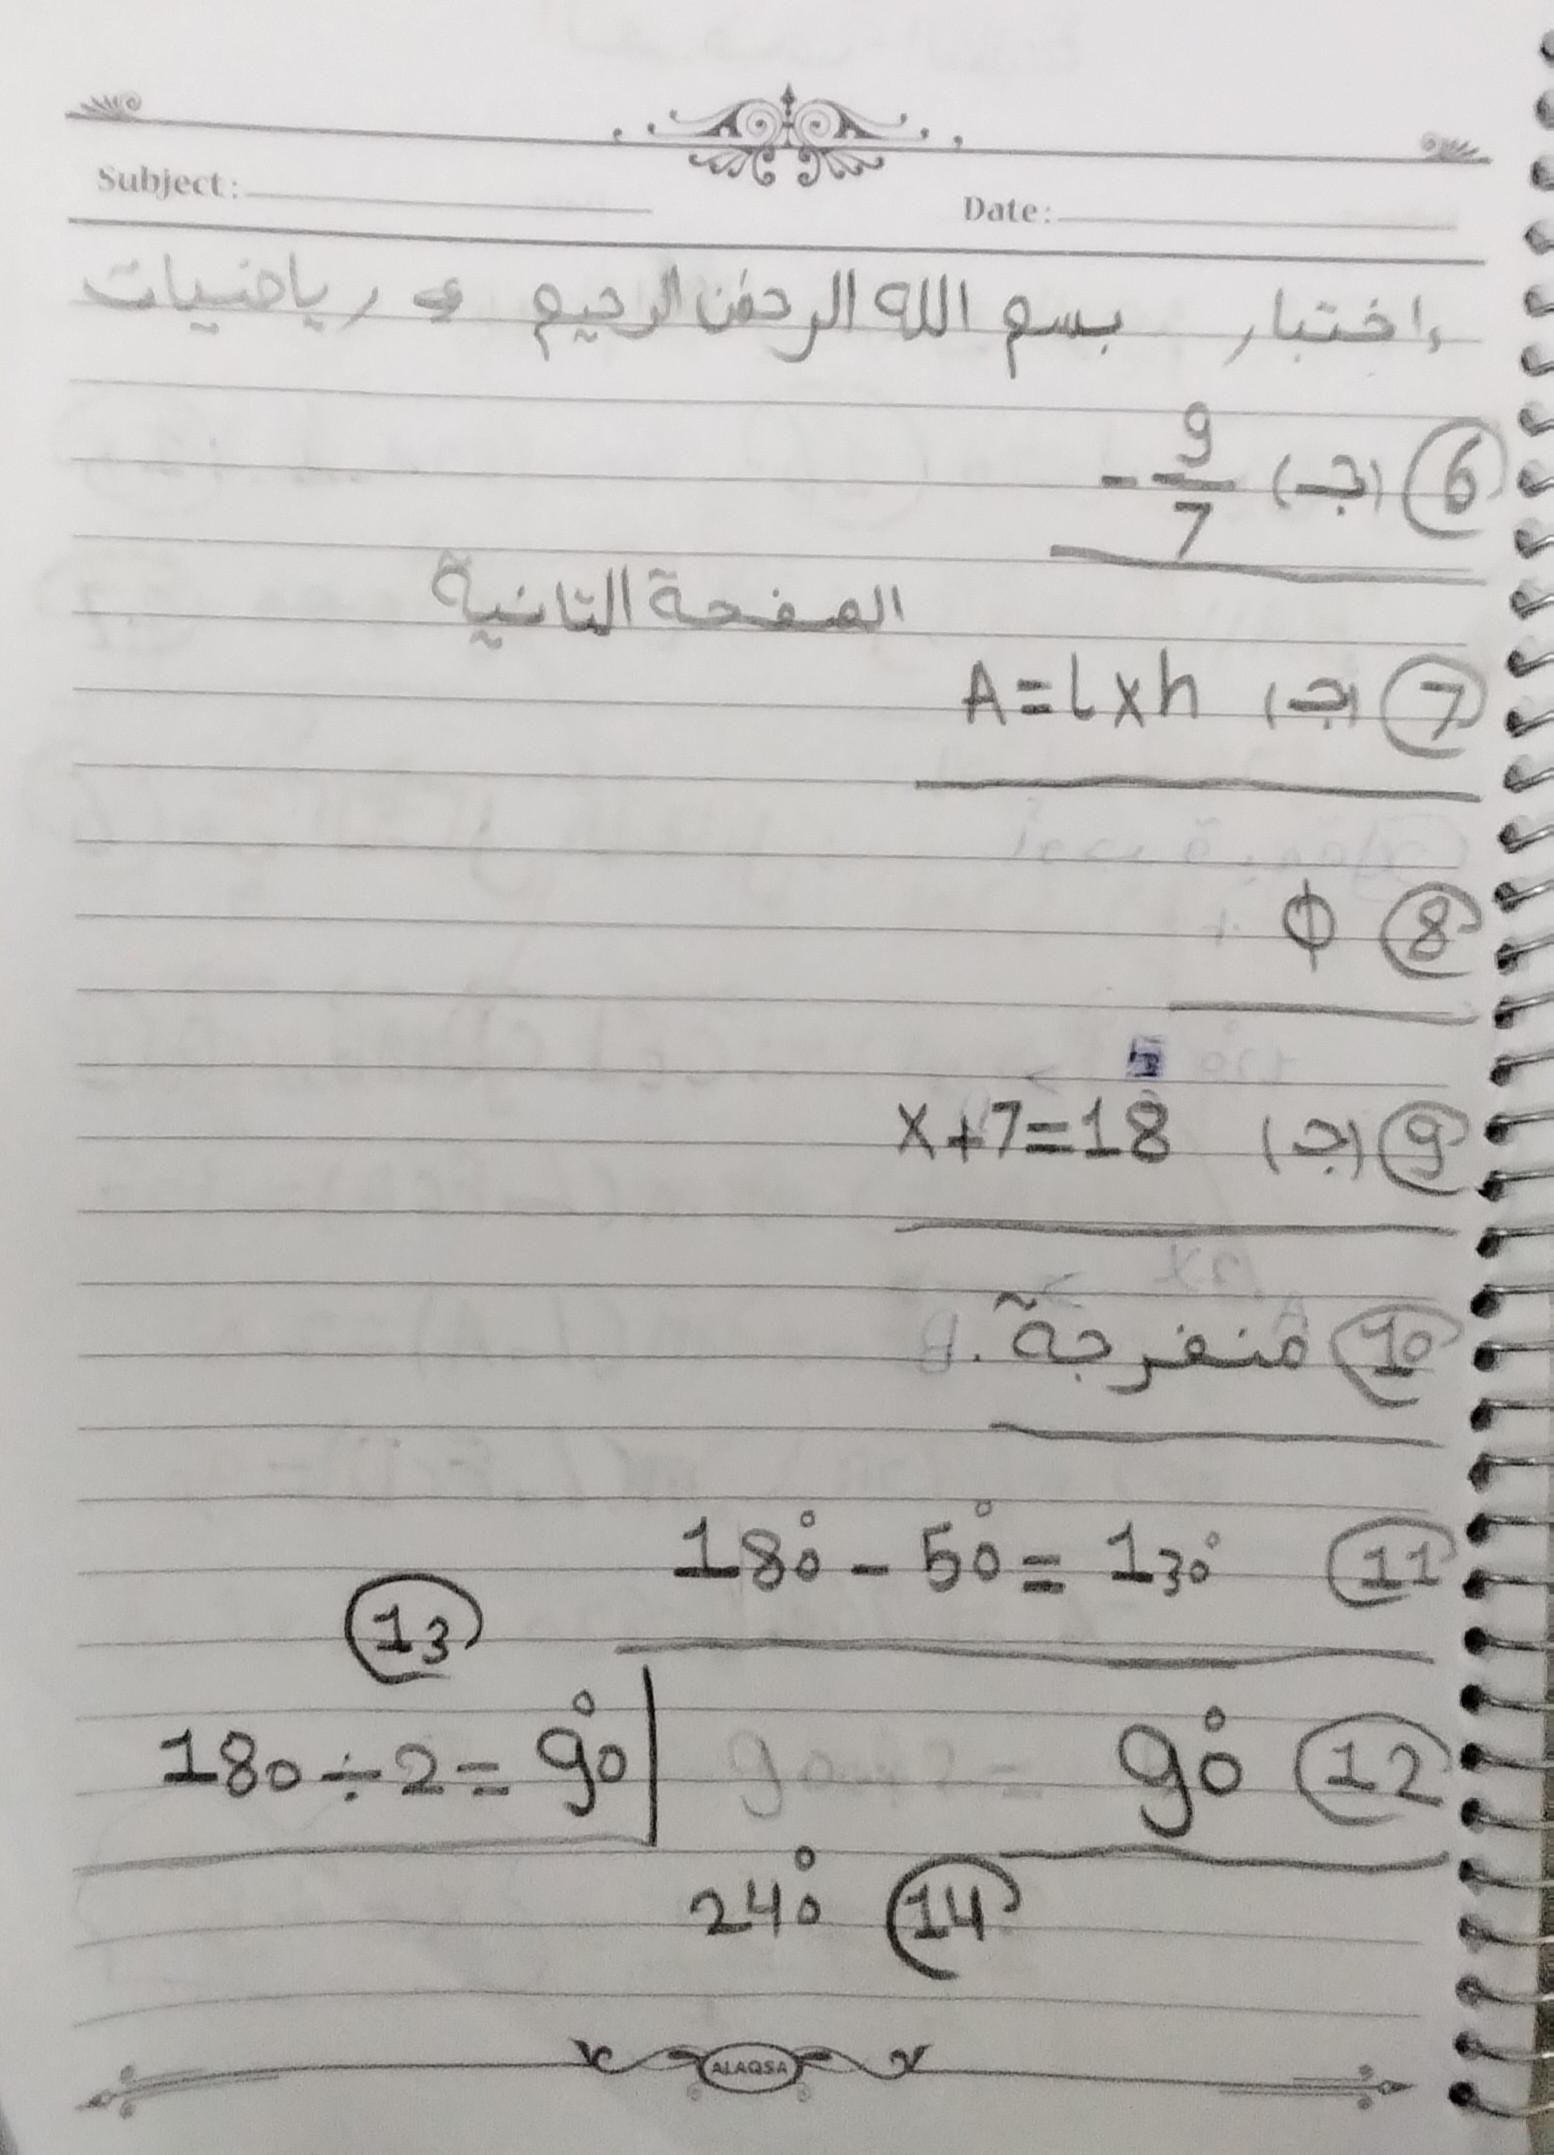 Subject: Date:
اختبار بسم الله الرحمن الرحيم في رياضيات
6 (جـ) - 9/7
الصفحة الثانية
7 (جـ) A = L x h
8 ϕ
9 (جـ) x + 7 = 18
10 منفرجة.
11 180° - 50° = 130°
13
12 90°
180 ÷ 2 = 90°
14 240°
ALAQSA